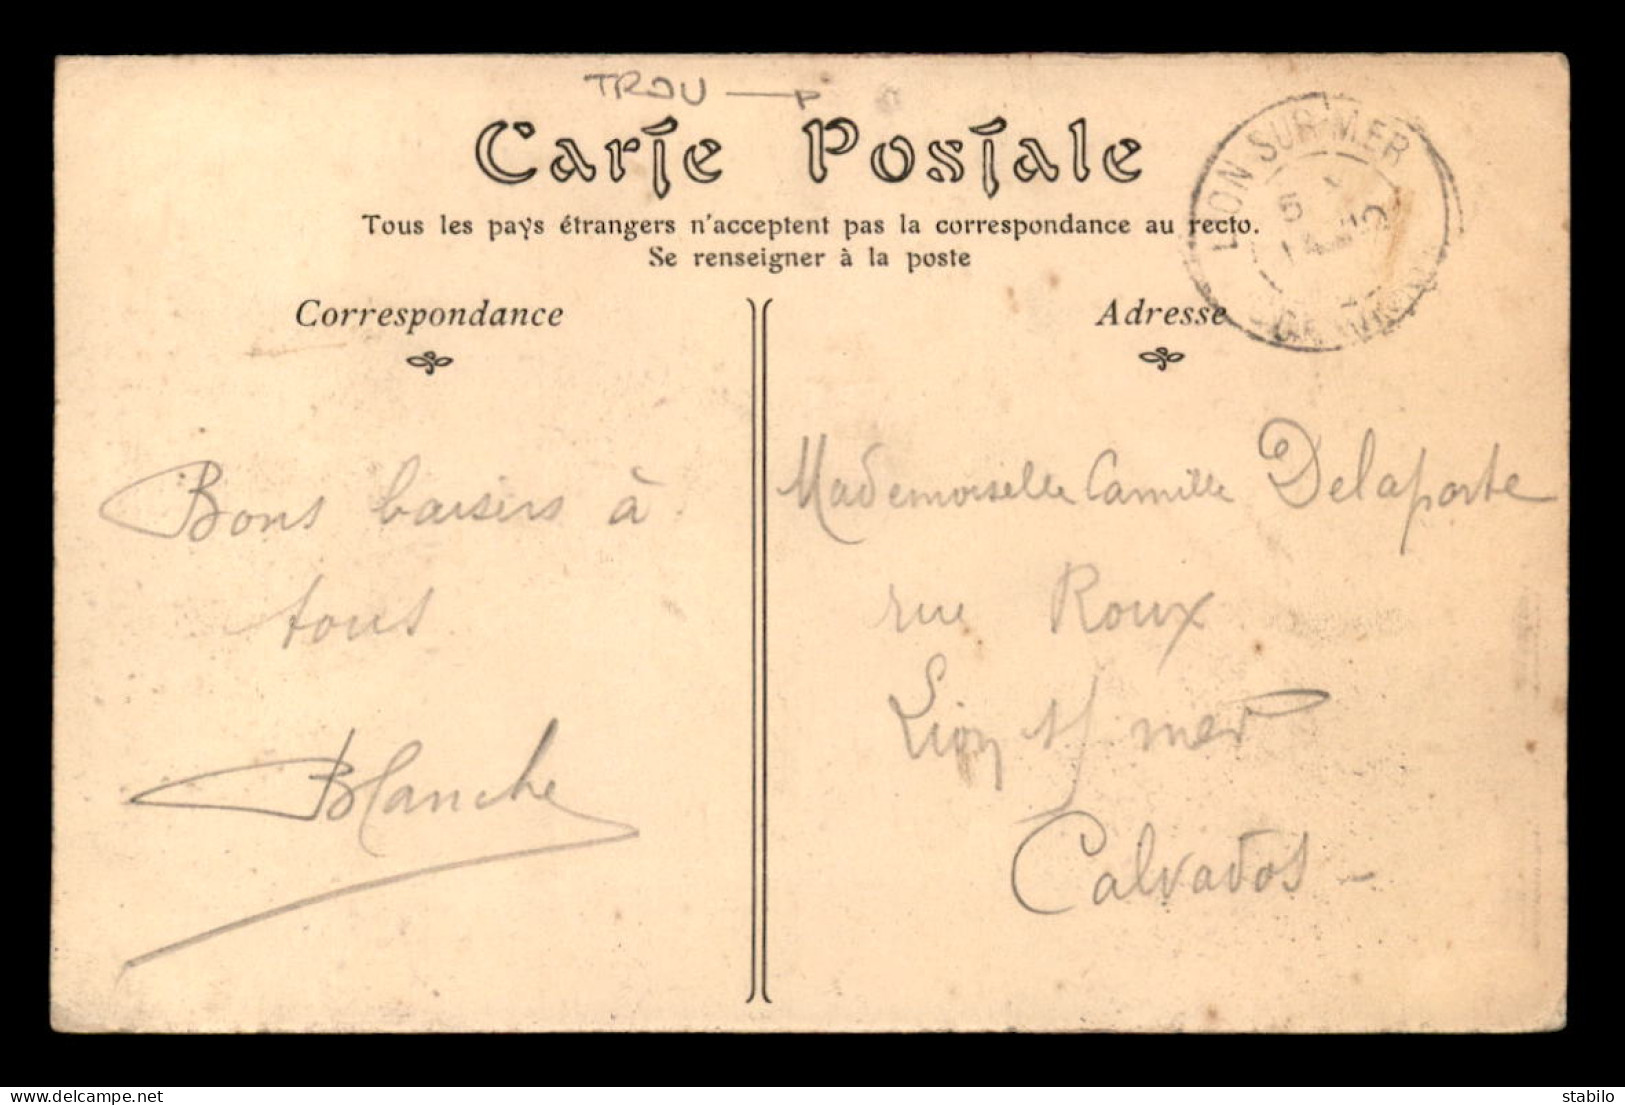 TROU
Carte Postale
Tous les pays étrangers n'acceptent pas la correspondance au recto.
Se renseigner à la poste
LION-SUR-MER
Correspondance
Adresse
Bons baisers à
tous
Blanche
Mademoiselle Camille Delaporte
rue Roux
Lion s/ mer
Calvados -
www.delcampe.net
stabilo